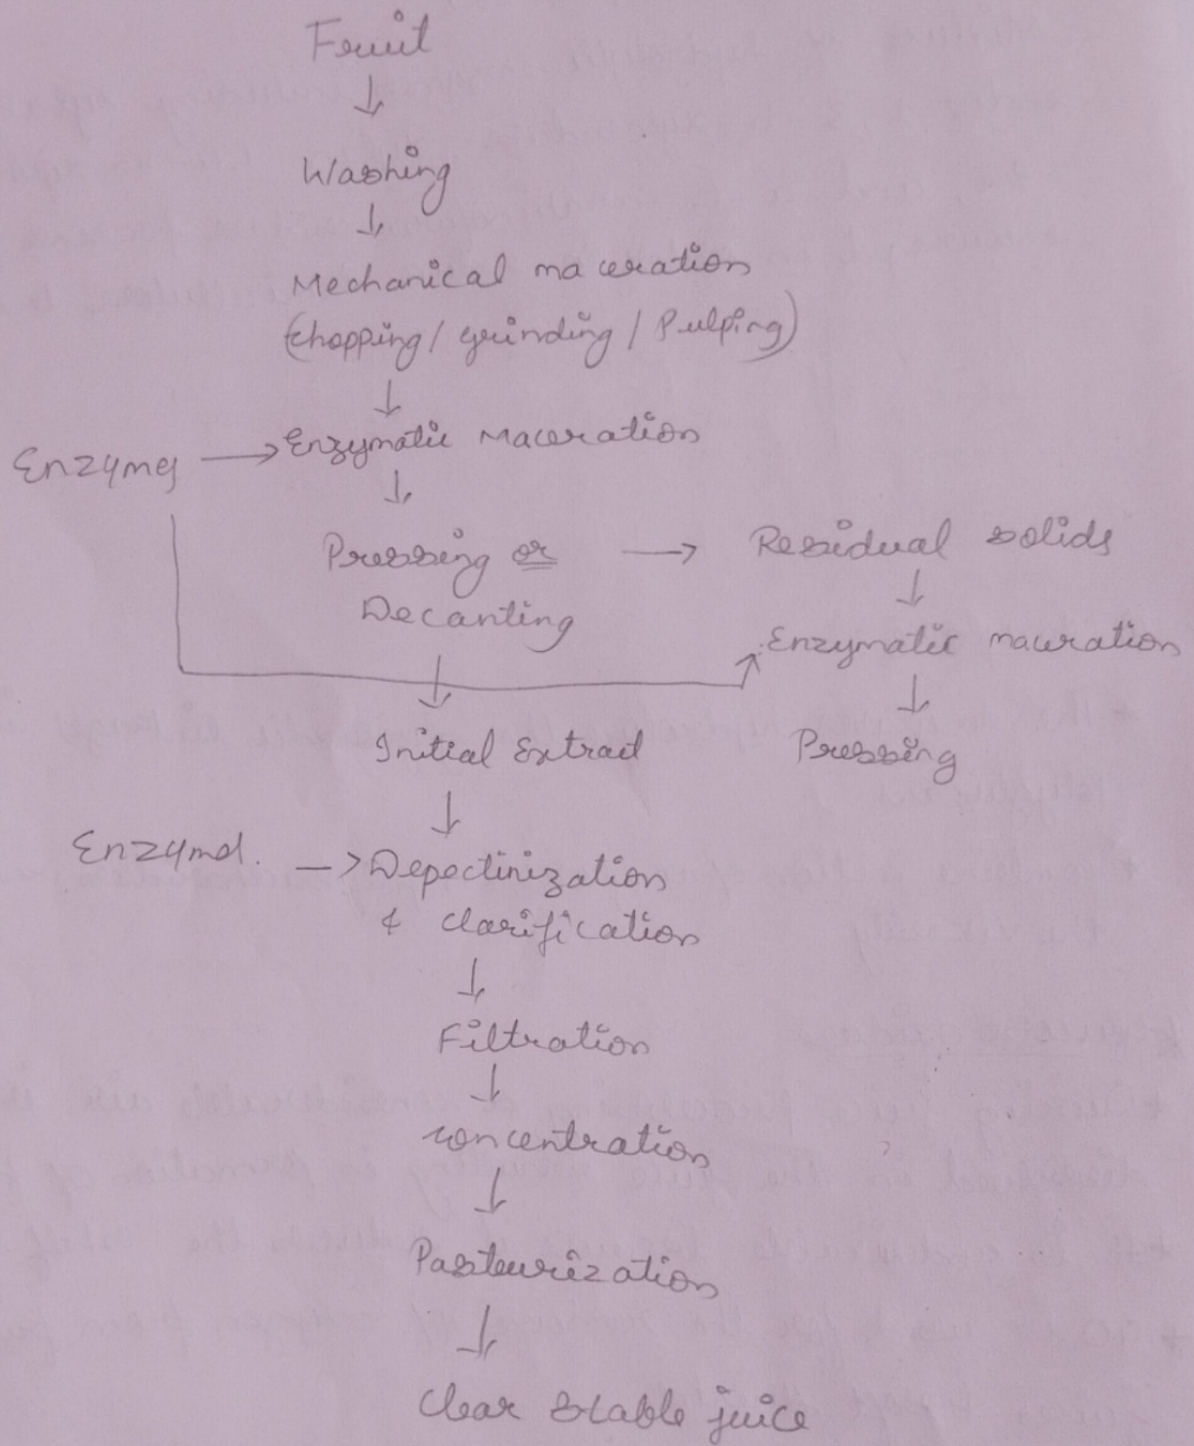 Fruit
Washing
Mechanical maceration
(chopping / grinding / Pulping)
Enzymes → Enzymatic Maceration
Pressing or → Residual solids
Decanting
Enzymatic maceration
Initial Extract
Pressing
→ Depectinization
& clarification
Filtration
concentration
Pasteurization
clear stable juice